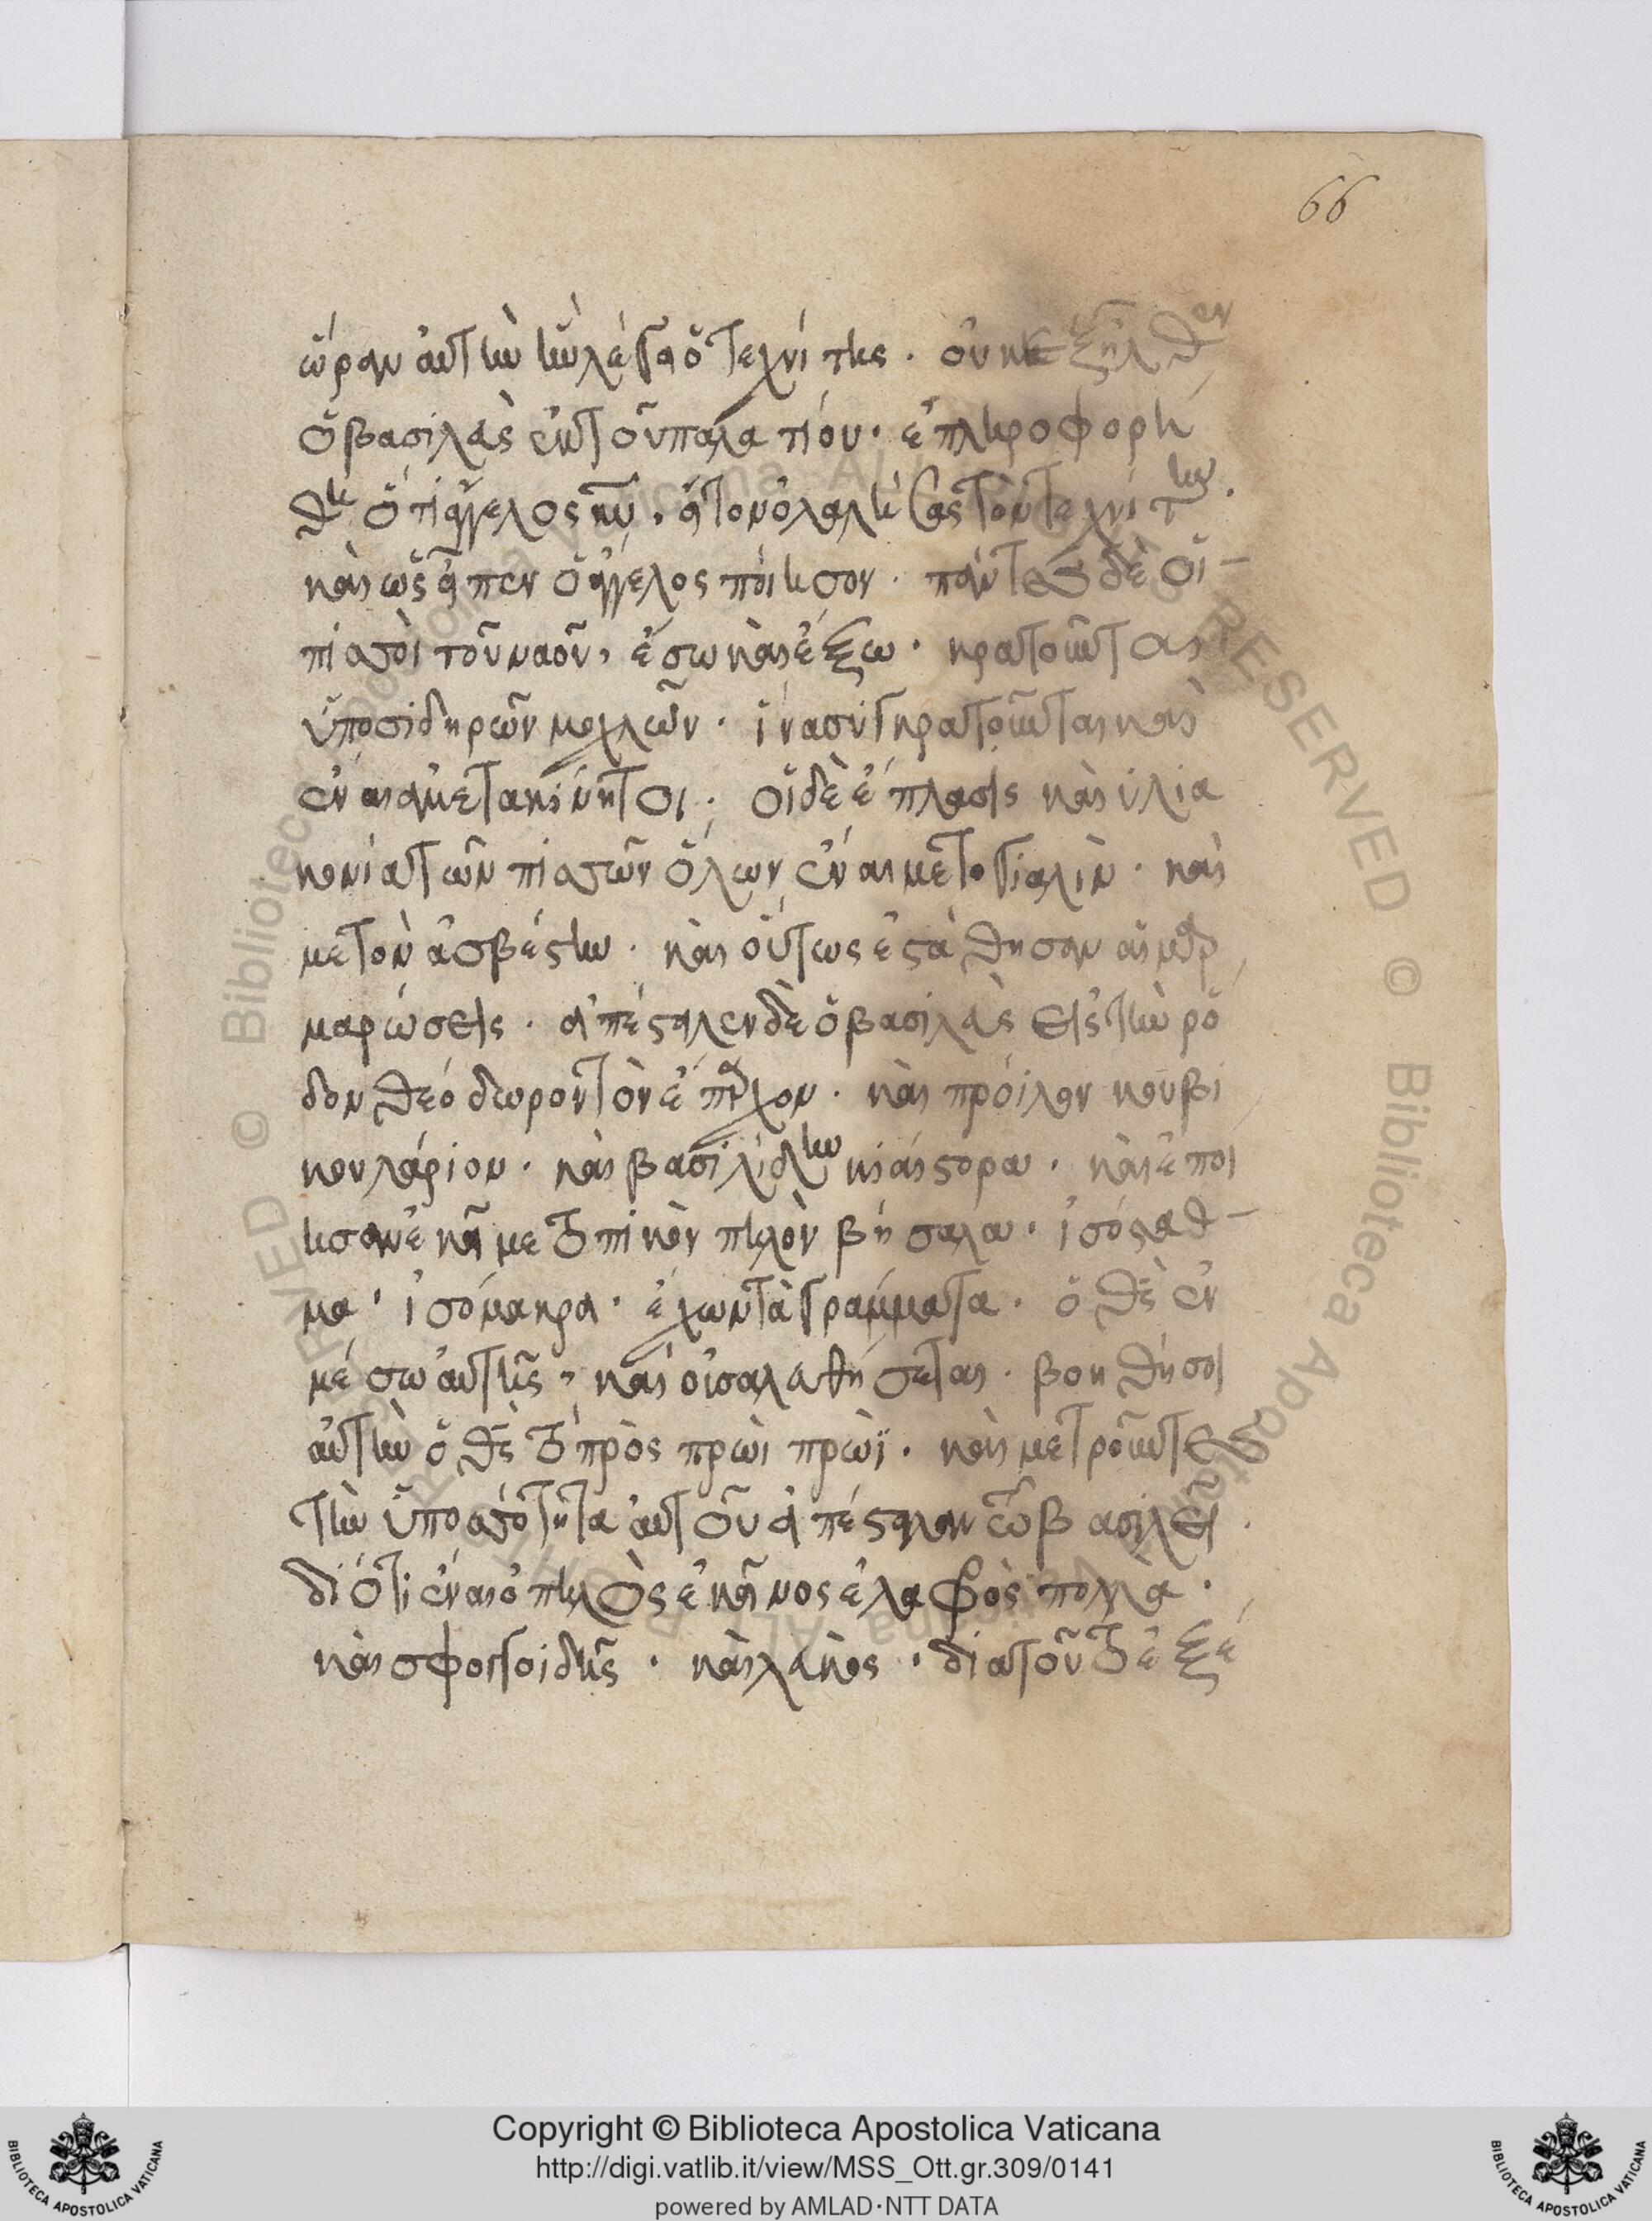 66
ὥραν αὐτὴν ἣν λέγει ὁ τεχνίτης. οὐκ ἐξῆλθεν
ὁ βασιλεὺς ἐκ τοῦ παλατίου. ἐπληροφορή
θη ὅτι ἄγγελος ἦν, εἰς τὸν ὁλαλήσας τὸν τεχνίτην.
καὶ ὡς εἶπεν ὁ ἄγγελος ποίησον. πάντες δὲ οἱ
πισσοὶ τοῦ ναοῦ, ἔσω καὶ ἔξω. κρατοῦνται
ὑπὸ σιδηρῶν μοχλῶν. ἵνα συγκρατοῦνται καὶ
ἐν αι ἀμετακίνητοι. οἱ δὲ ἔπλασις καὶ ὑλία
κονία τῶν πισσῶν ὅλων ἔν αι με το γιαλὶν. καὶ
με τὸν ἀσβέστην. καὶ οὕτως ἐστάθησαν αἱ μαρ
μαρώσεις. ἀπέστειλεν δὲ ὁ βασιλεὺς εἰς τὴν ῥό
δον θεόδωρον τὸν ἔπαρχον. καὶ πρόιλον κουβι
κουλάριον. καὶ βασιλίδην κιάστορα. καὶ ἐποί
ησαν ἐκεῖ με τοπικὸν πηλὸν βήσαλα. ἰσόσταθ
μα. ἰσόμακρα. ἔχων τὰ γράμματα. ὁ θεὸς ἐν
μέσω αὐτῆς, καὶ οὐ σαλευθήσεται. βοηθήσει
αὐτὴν ὁ θεὸς τὸ πρὸς πρωὶ πρωΐ. καὶ μετροῦντες
τὴν ὑποσσότητα αὐτοῦ ἀπέστειλαν τῷ βασιλεῖ.
διότι ἔν αι ὁ πηλὸς ἐκεῖνος ἐλαφρὸς πολλὰ.
καὶ σφογγοιδὴς. καὶ λευκὸς. διατοῦτο ἐξέ
Copyright © Biblioteca Apostolica Vaticana
http://digi.vatlib.it/view/MSS_Ott.gr.309/0141
powered by AMLAD·NTT DATA